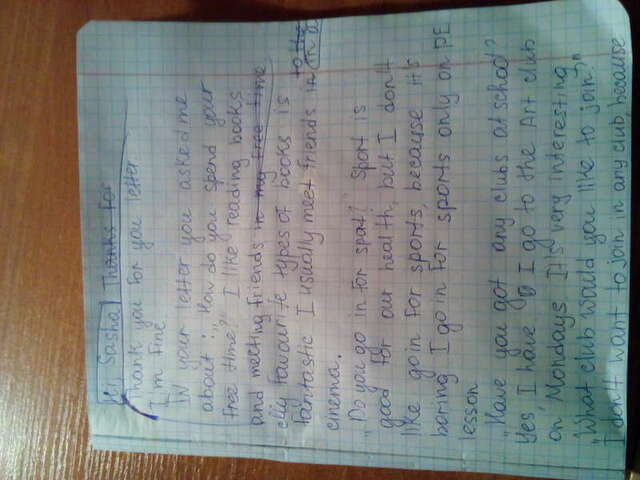 Hi, Sasha! Thanks for
Thank you for you letter
I'm fine
In your letter you asked me
about: "How do you spend your
free time?" I like reading books
and meeting friends in my free time
My favourite types of books is
fantastic I usually meet friends in a
cinema.
"Do you go in for spot?" Sport is
good for our health, but I don't
like go in for sports, because it's
boring I go in for sports only on PE
lesson
"Have you got any clubs at school?"
Yes, I have I go to the Art club
on Mondays It's very interesting
"What club would you like to join?"
I don't want to join in any club because